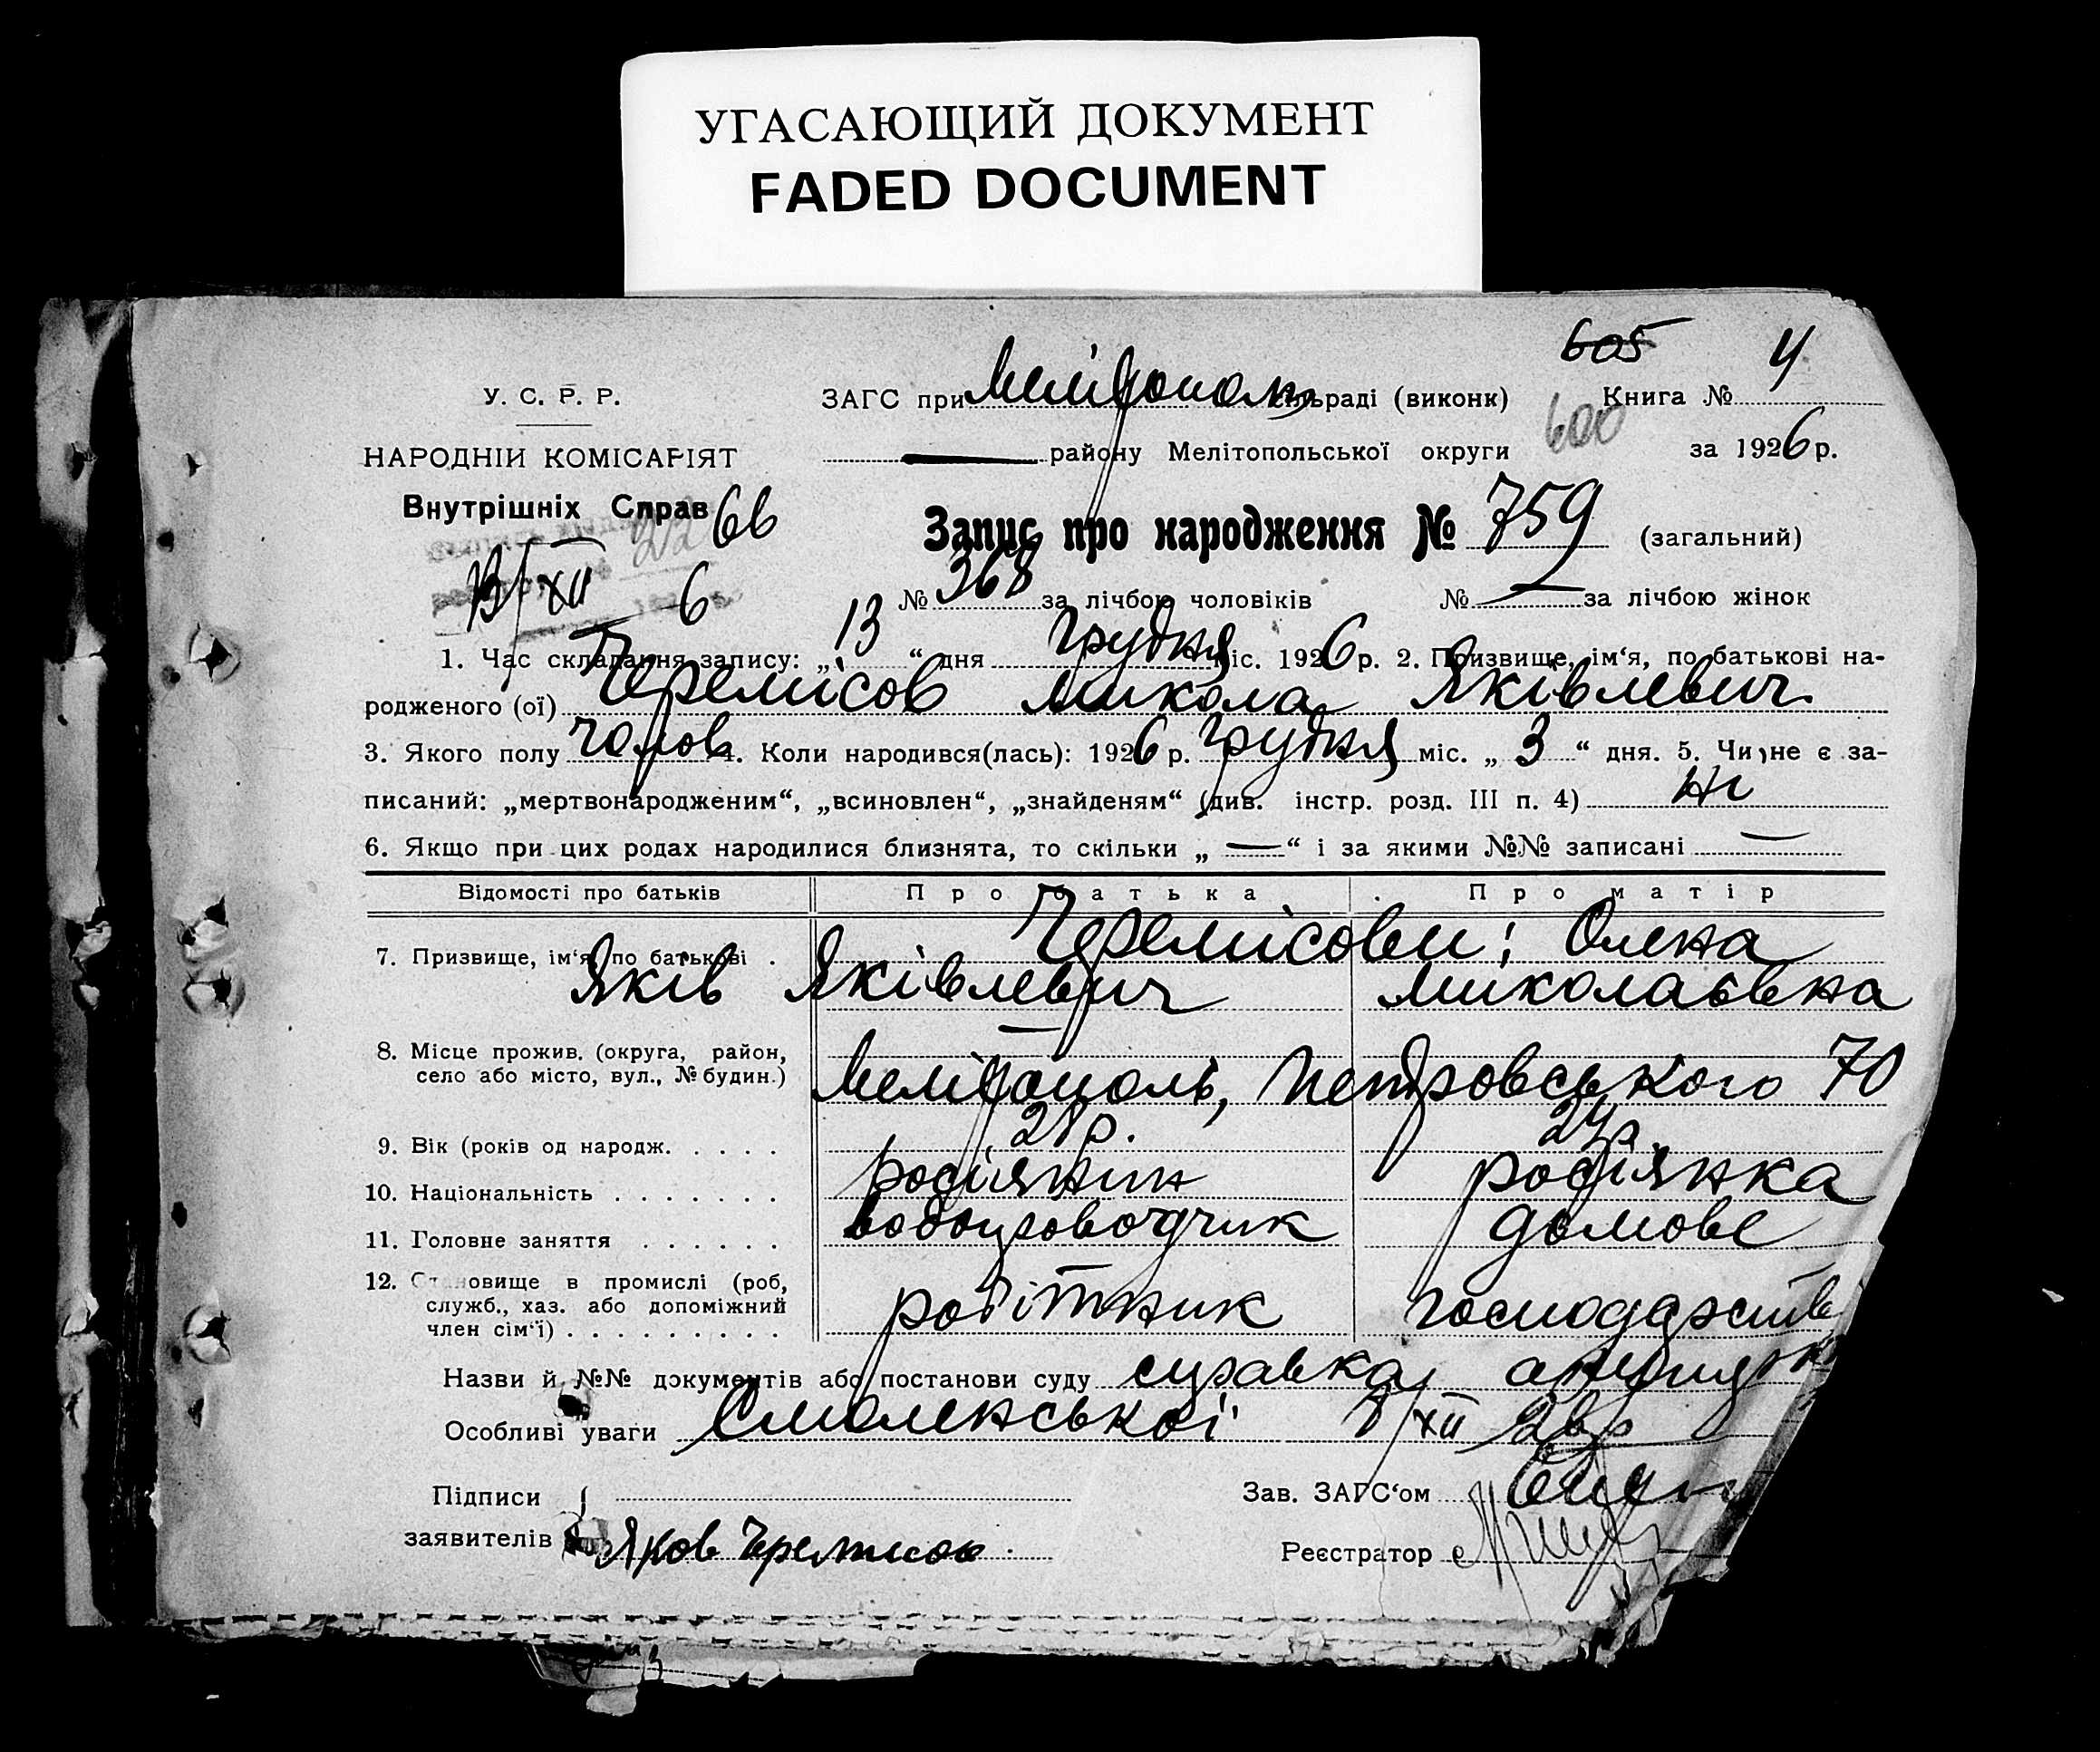 УГАСАЮЩИЙ ДОКУМЕНТ
FADED DOCUMENT
605 4
У. С. Р. Р. ЗАГС при Мелітополь сільраді (виконк) Книга №
600
НАРОДНІЙ КОМІСАРІЯТ — району Мелітопольської округи за 1926 р.
Внутрішніх Справ
Запис про народження № 759 (загальний)
№ 368 за лічбою чоловіків № — за лічбою жінок
1. Час складання запису: „13“ дня Грудня міс. 1926 р. 2. Призвище, ім‘я, по батькові на-
родженого (ої) Черемісов Микола Яківлевич
3. Якого полу чолов 4. Коли народився(лась): 1926 р. Грудня міс. „3“ дня. 5. Чи не є за-
писаний: „мертвонародженим“, „всиновлен“, „знайденям“ (див. інстр. розд. III п. 4) Ні
6. Якщо при цих родах народилися близнята, то скільки „—“ і за якими №№ записані —
Відомості про батьків Про батька Про матір
7. Призвище, ім‘я, по батькові . Черемісови: Олена
Яків Яківлевич Миколаївна
8. Місце прожив. (округа, район,
село або місто, вул., № будин.) Мелітополь, Петровського 70
9. Вік (років од народж. . . . . 28 р. 24 р.
10. Національність . . . . . . . росіянин росіянка
11. Головне заняття . . . . . . водопроводчик домове
12. Становище в промислі (роб,
служб., хаз. або допоміжний
член сім‘ї) . . . . . . . . . робітник господарств
Назви й №№ документів або постанови суду справка
Особливі уваги Смоленської XII 26 р
Підписи Зав. ЗАГС‘ом
заявителів Яков Черемисов Реєстратор